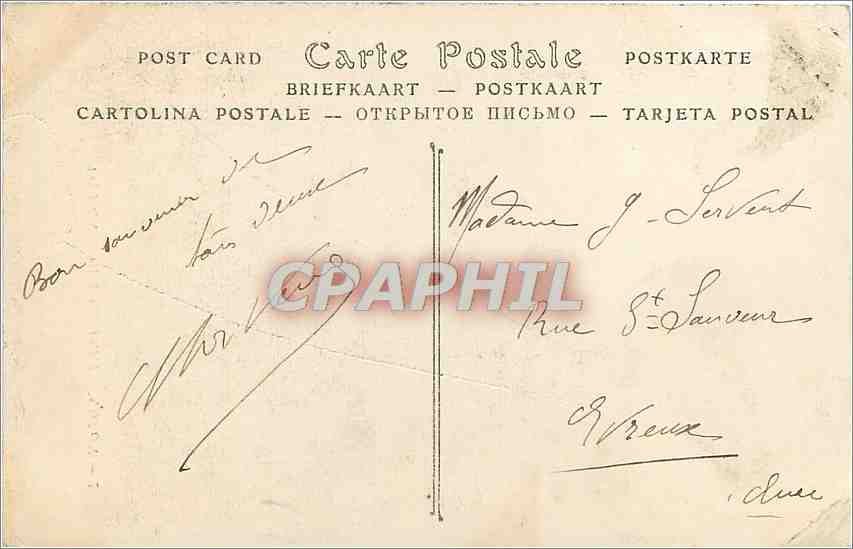 POST CARD Carte Postale POSTKARTE
BRIEFKAART — POSTKAART
CARTOLINA POSTALE -- ОТКРЫТОЕ ПИСЬМО — TARJETA POSTAL
Bon souvenir de
tous deux
CPAPHIL
Madame J - Servent
Rue St Sauveur
Evreux